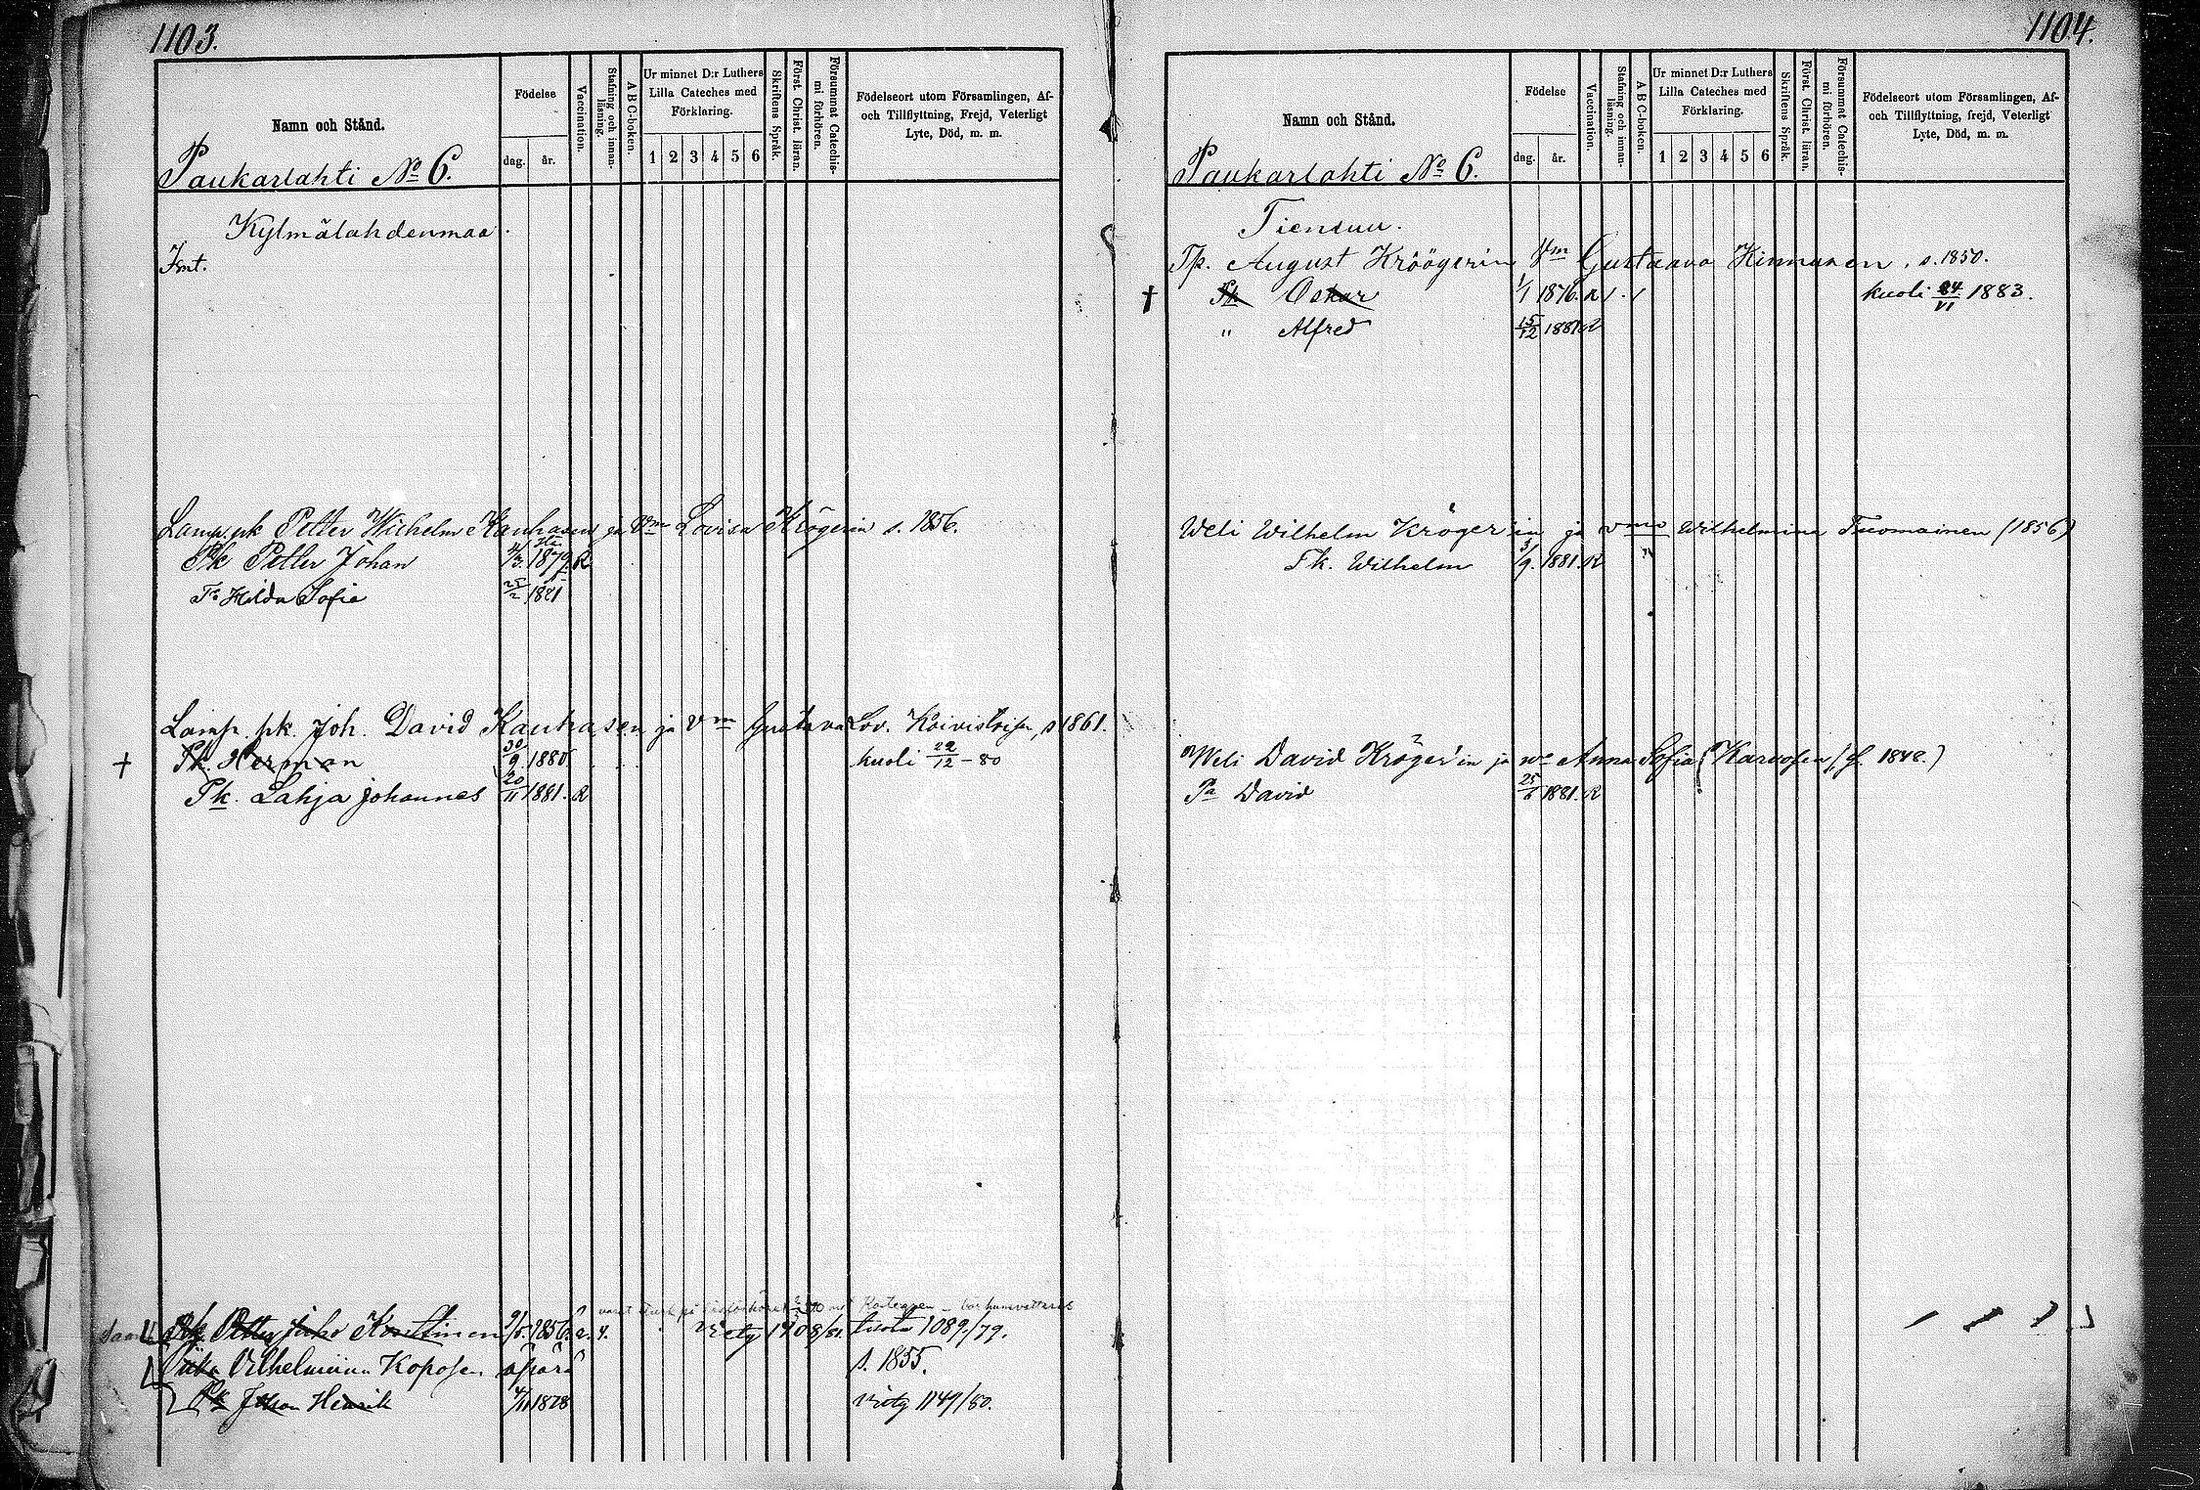 1103.
Namn och Stånd.
Paukarlahti No 6.
Födelse
dag. år.
Vaccination.
Stafning och innan-läsning.
A B C-boken.
Ur minnet D:r Luthers
Lilla Cateches med
Förklaring.
1 2 3 4 5 6
Skriftens Språk.
Först. Christ. läran.
Försummat Catechis-mi förhören.
Födelseort utom Församlingen, Af-
och Tillflyttning, Frejd, Veterligt
Lyte, Död, m. m.
Kylmälahdenmaa.
Lamp. pk Petter Wilhelm Kauhasen ja Vm Lovisa Krögerin s. 1856.
Pk Petter Johan 1879 R
Hilda Sofia 25/2
Lamp. pk. Joh. David Kauhasen ja Vm Gustava Lov. s 1861.
† Pk. Herman 30/9 1880 kuoli 22/12 - 80
Pk. Lahja Johannes 20/11 1881. R
Pk Petter Juho 1856 1908/81. 1089/79.
Vilhelmiina Koposen äpärä s. 1855.
Pk Johan Henrik 4/11 1878 1149/80.
1104.
Namn och Stånd.
Paukarlahti No 6.
Födelse
dag. år.
Vaccination.
Stafning och innan-läsning.
A B C-boken.
Ur minnet D:r Luthers
Lilla Cateches med
Förklaring.
1 2 3 4 5 6
Skriftens Språk.
Först. Christ. läran.
Försummat Catechis-mi förhören.
Födelseort utom Församlingen, Af-
och Tillflyttning, frejd, Veterligt
Lyte, Död, m. m.
Tiensuu.
Tp. August Kröögerin Vm Gustaava Kinnunen, s. 1850.
† Pk Oskar 1/1 1876. R kuoli 24/VI 1883.
" Alfred 15/12 1881 R
Weli Wilhelm Kröger'in ja vmo Wilhelmina Tuomainen (1856)
Pk. Wilhelm 3/9. 1881. R
Weli David Kröger'in ja Anna Sofia (Karvosen f. 1848.)
Pa David 25/6 1881. R